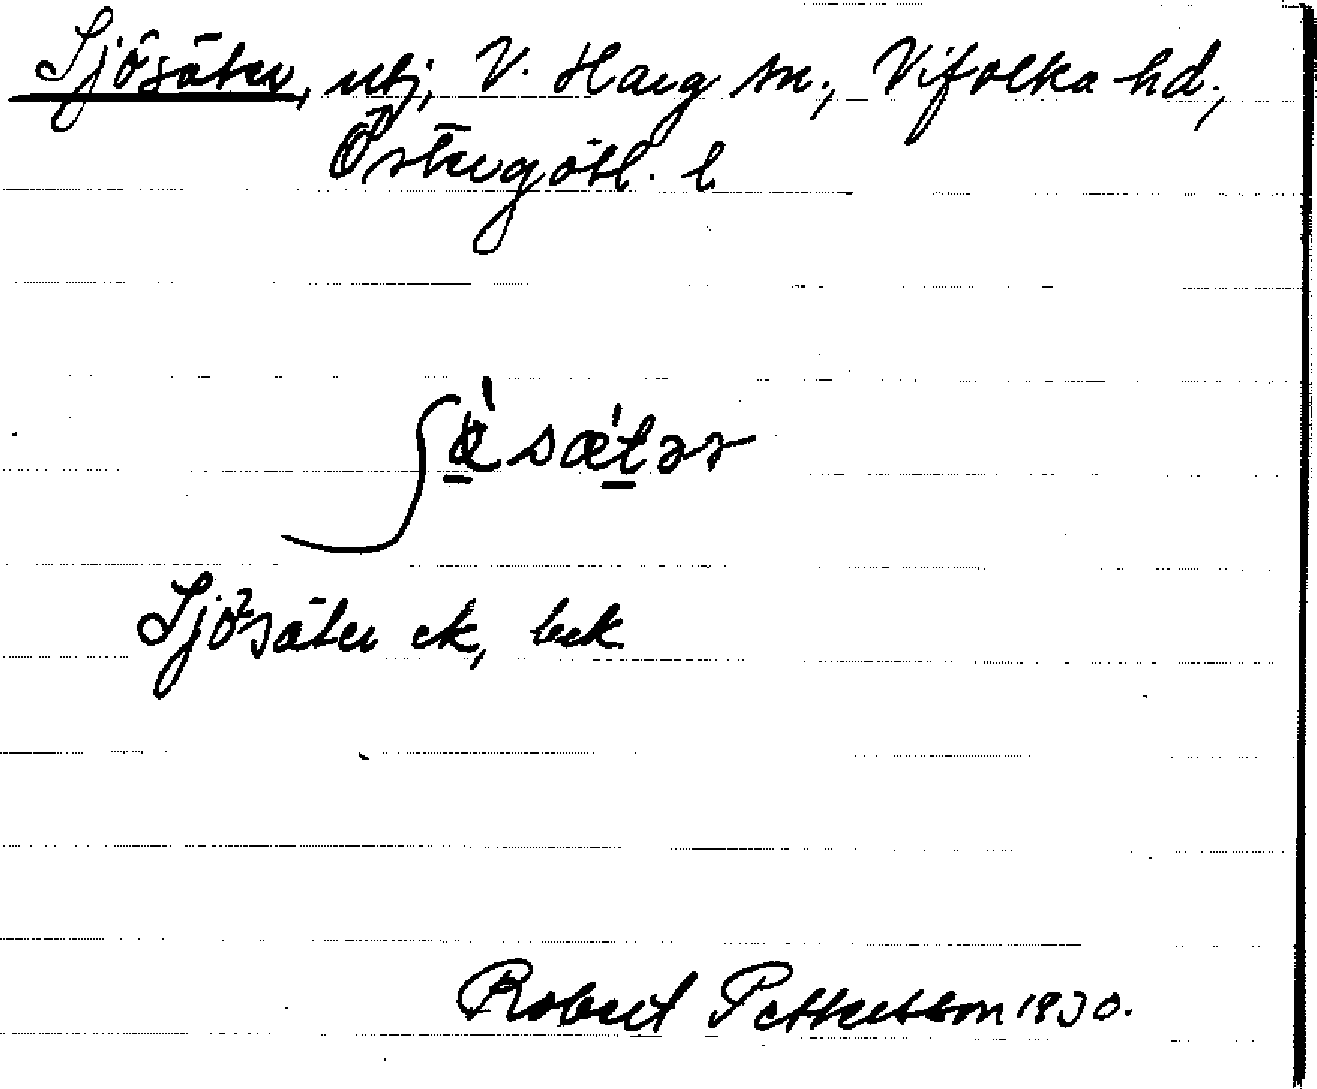 Sjösäter, utj, V. Harg sn., Vifolka hd.,
Östergötl. l.
Sjösäter ek, bek
Robert Pettersson 1930.